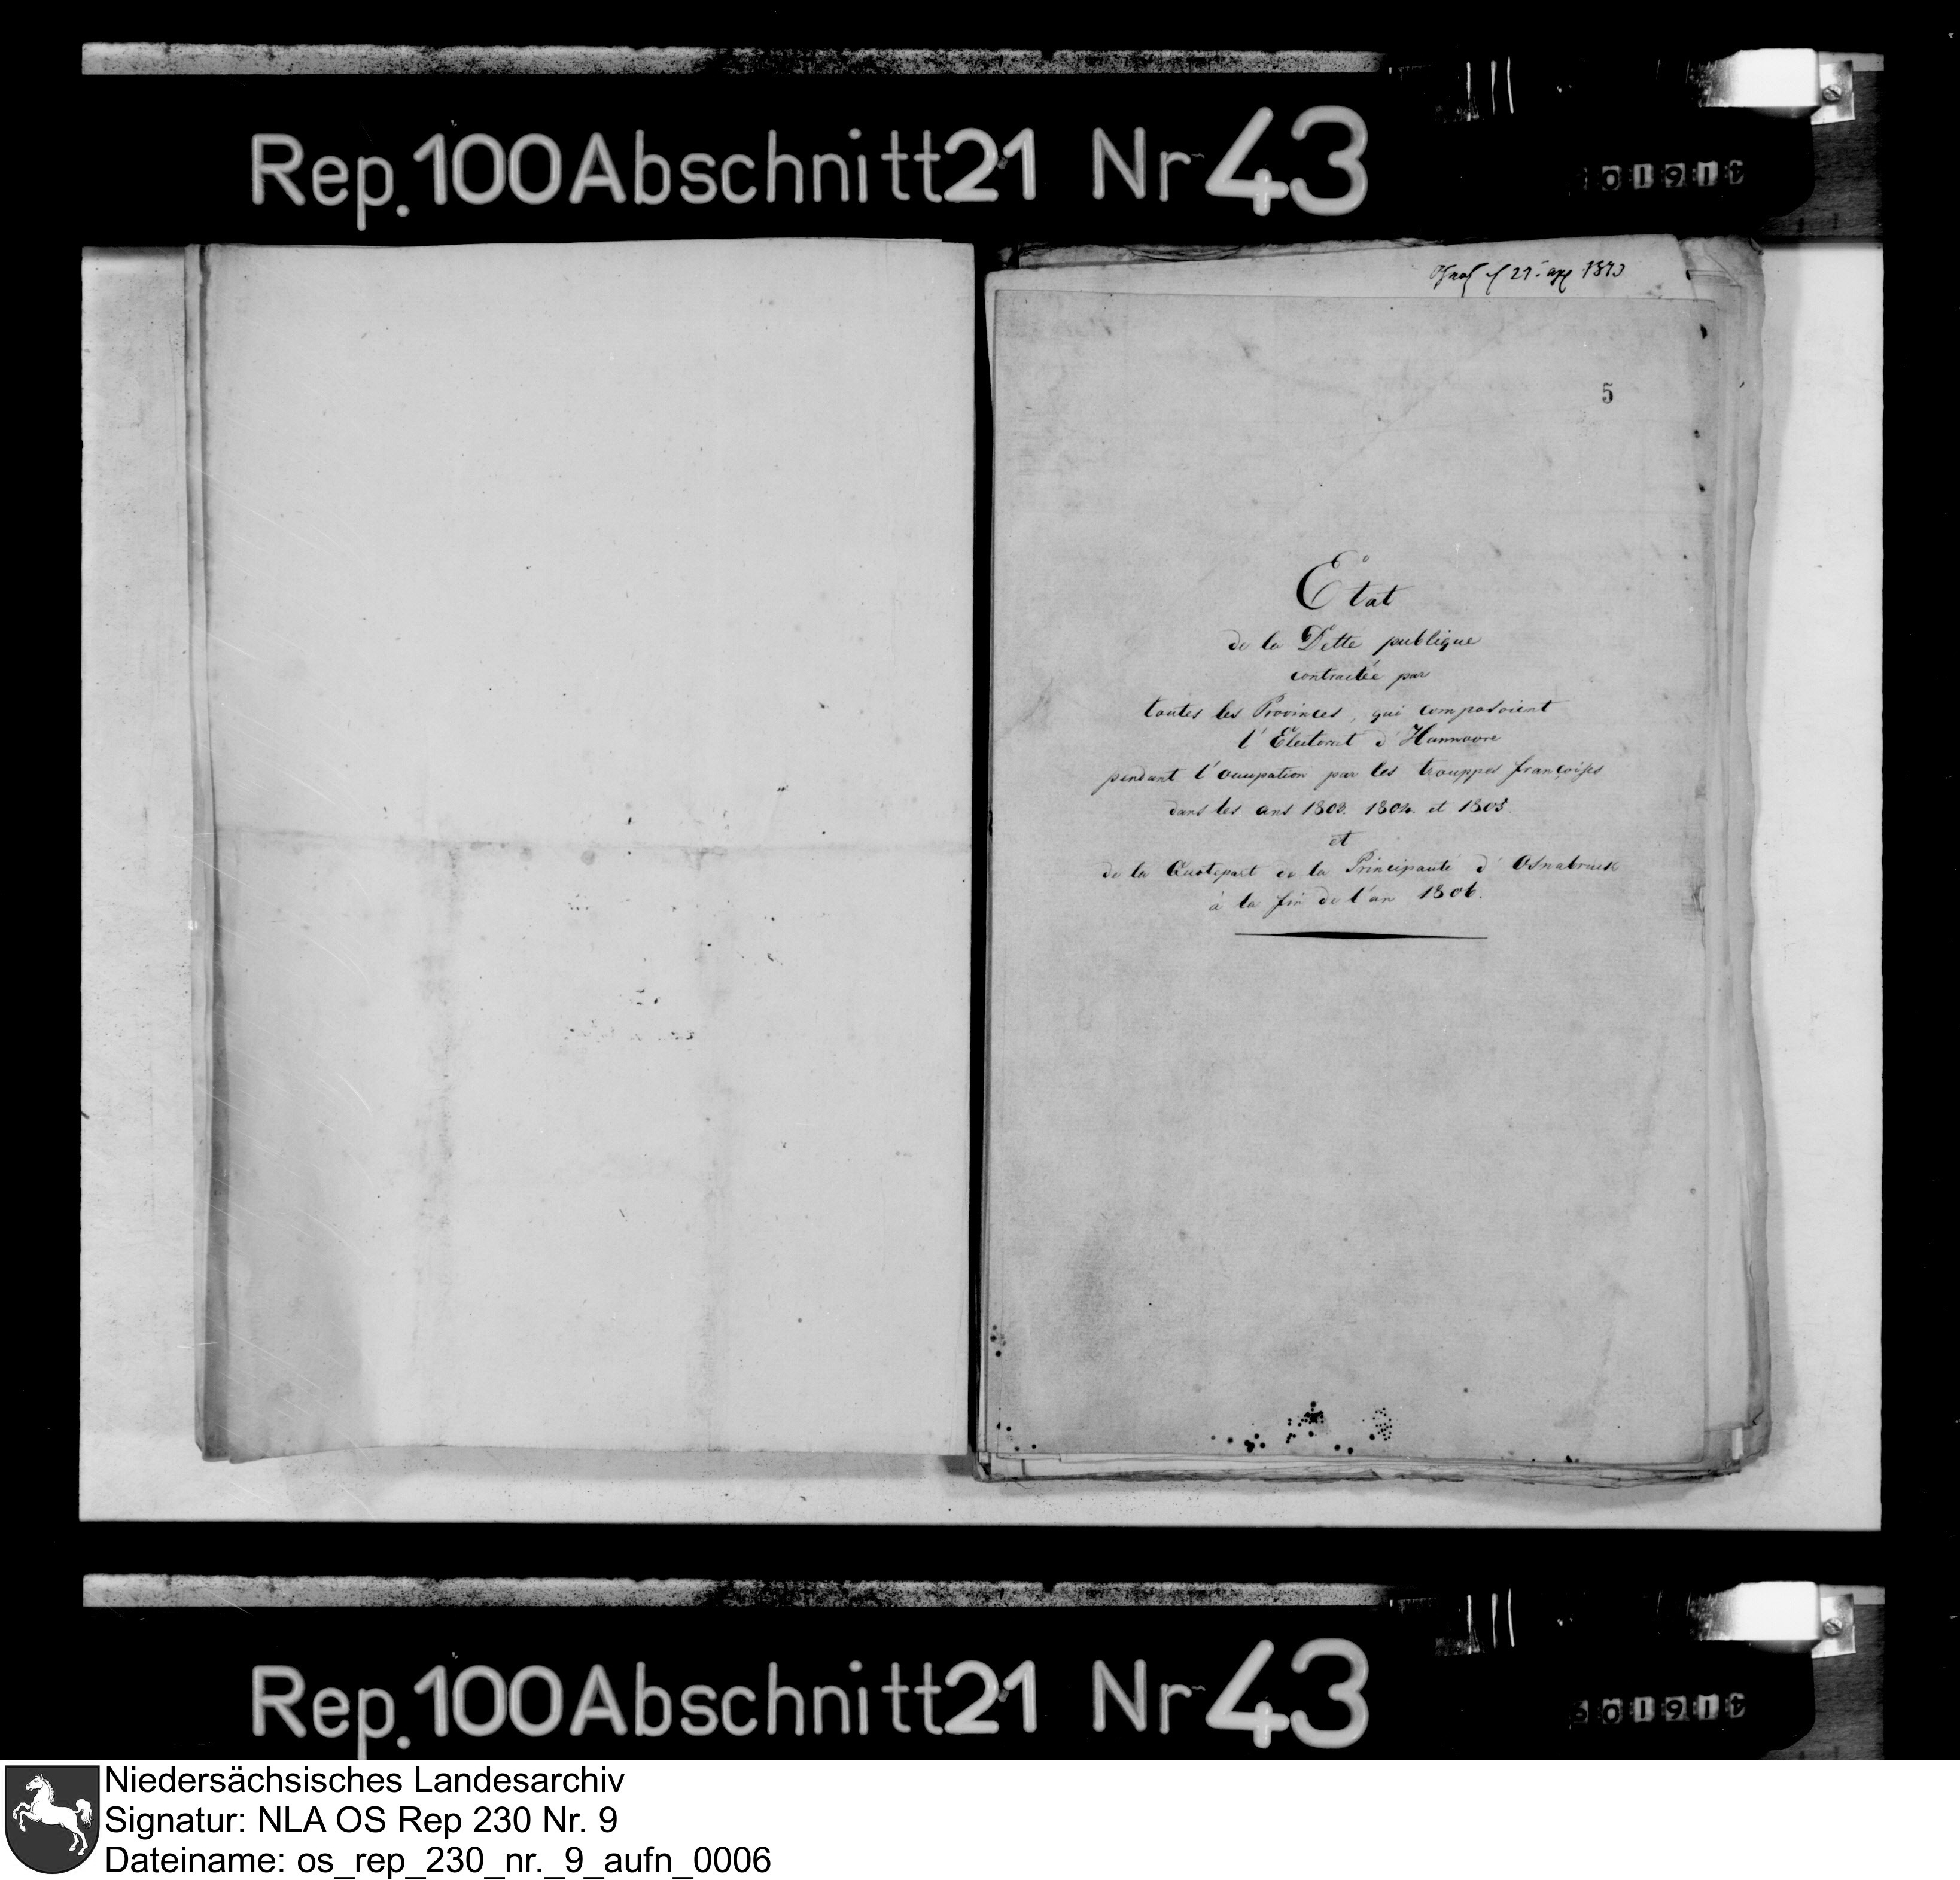 Rep. 100 Abschnitt 21 Nr 43
5
Etat
de la Dette publique
contractée par
toutes les Provinces, qui composoient
l'Electorat d'Hannovre
pendant l'occupation par les trouppes françoises
dans les ans 1803. 1804. et 1805
et
de la Quotepart de la Principauté d'Osnabruck
à la fin de l'an 1806.
Rep. 100 Abschnitt 21 Nr 43
Niedersächsisches Landesarchiv
Signatur: NLA OS Rep 230 Nr. 9
Dateiname: os_rep_230_nr._9_aufn_0006